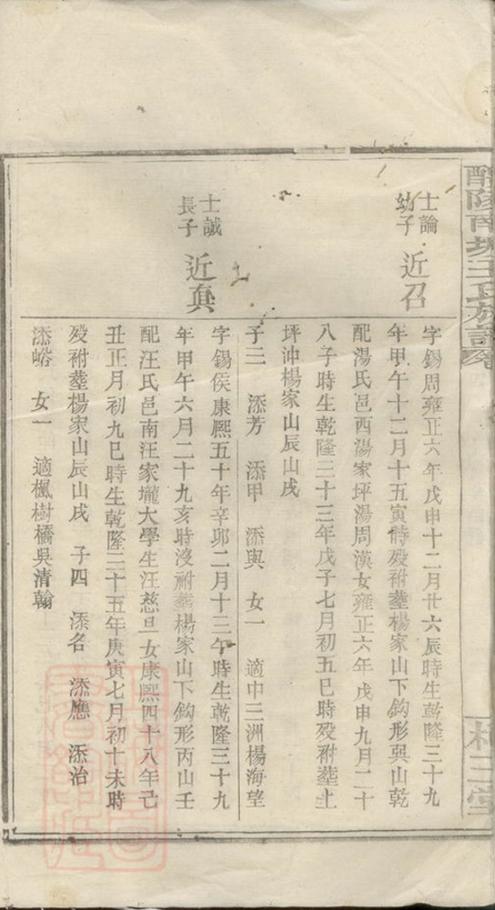 醴陵南城王氏族譜
士論
幼子
近召
字錫周雍正六年戊申十二月廿六辰時生乾隆三十九
年甲午十二月十五寅時殁祔塟楊家山下鈎形巽山乾
配湯氏邑西湯家坪湯周漢女雍正六年戊申九月二十
八子時生乾隆三十三年戊子七月初五巳時殁祔塟土
坪沖楊家山辰山戌
子三 添芳 添甲 添與 女一 適中三洲楊海望
士誠
長子
近真
字錫侯康熙五十年辛卯二月十三午時生乾隆三十九
年甲午六月二十九亥時沒祔塟楊家山下鈎形丙山壬
配汪氏邑南汪家壠大學生汪慈旦女康熙四十八年己
丑正月初九巳時生乾隆三十五年庚寅七月初十未時
殁祔塟楊家山辰山戌 子四 添名 添應 添治
添峪 女一 適楓樹橋吳清翰
三堂